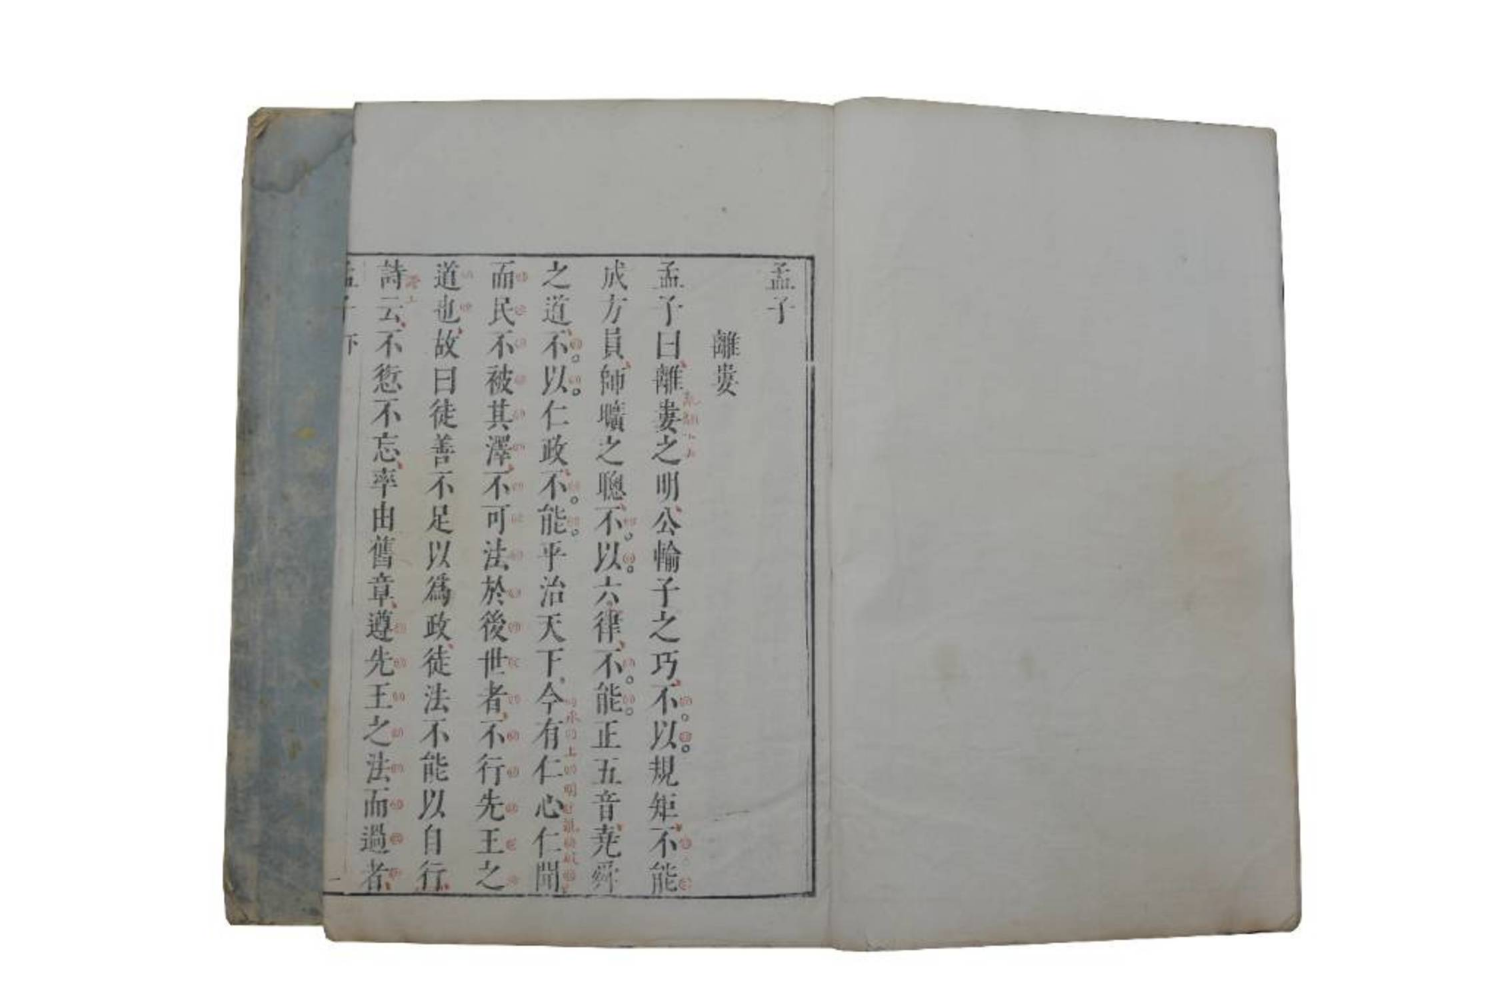 孟子
離婁
孟子曰離婁之明公輸子之巧不以規矩不能
成方員師曠之聰不以六律不能正五音堯舜
之道不以仁政不能平治天下今有仁心仁聞
而民不被其澤不可法於後世者不行先王之
道也故曰徒善不足以爲政徒法不能以自行
詩云不愆不忘率由舊章遵先王之法而過者
孟子下